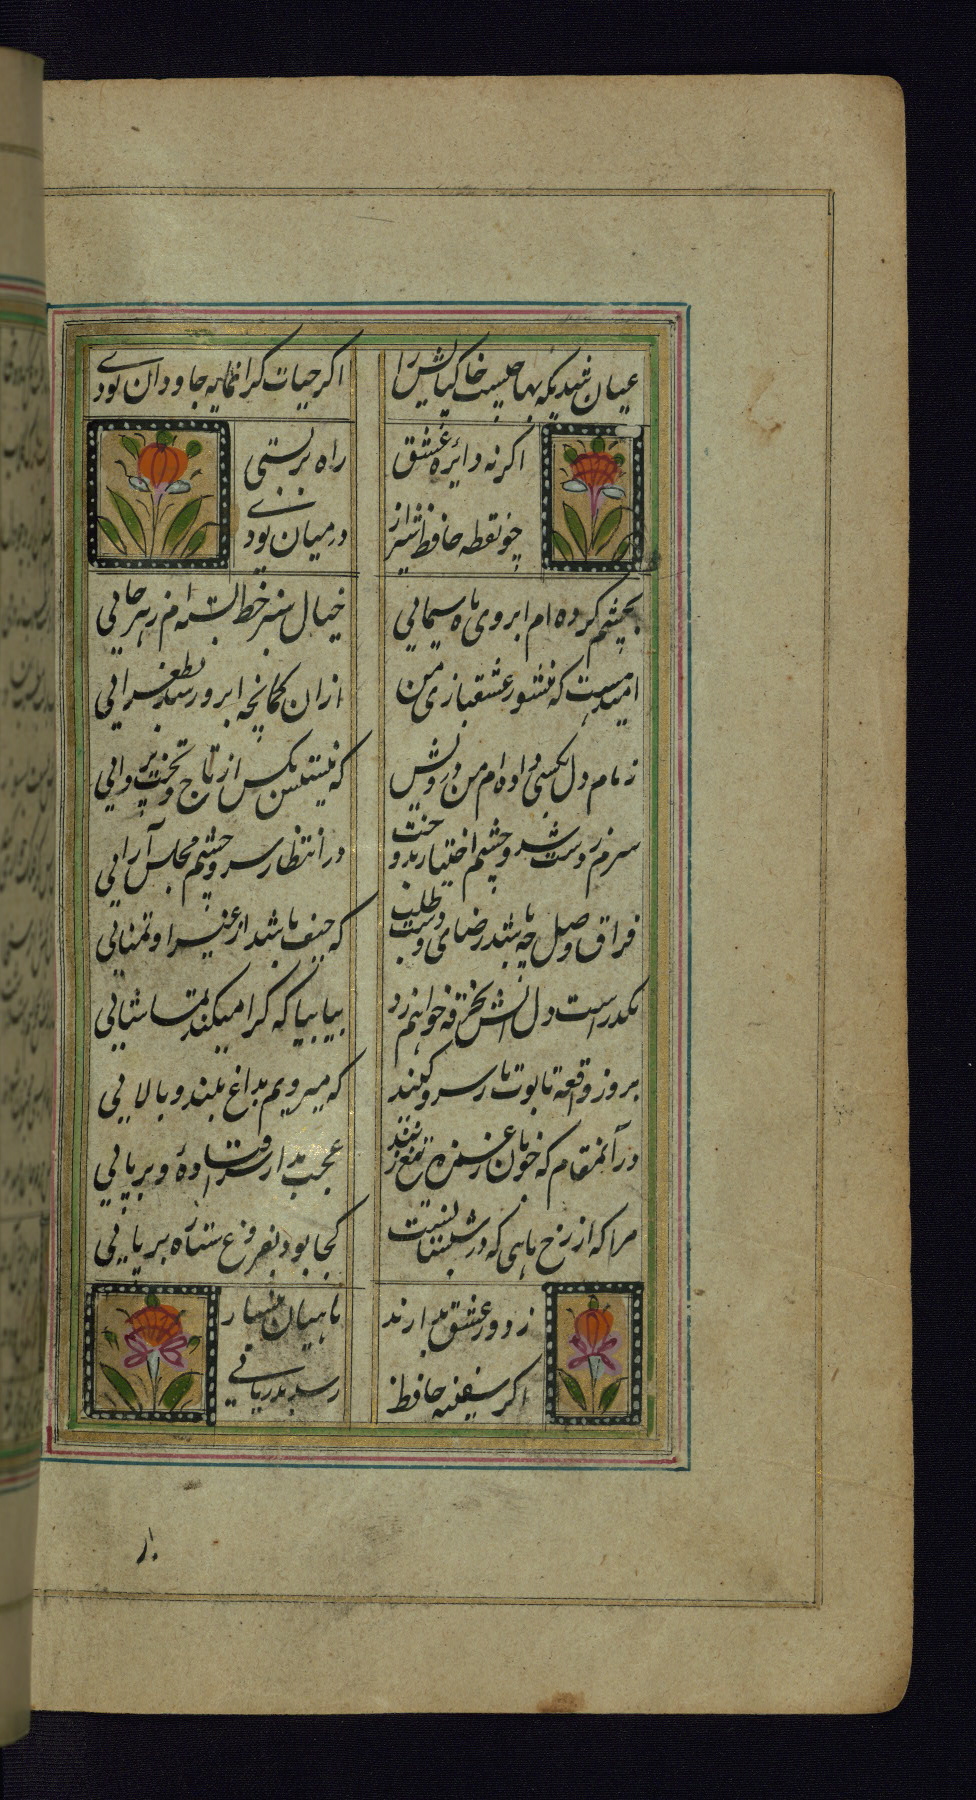 عیان شدیکه بها چیست خاک پایش را
اکر حیات کرانمایه جاودان بودی
اکر نه دائره عشق
راه بر بستی
چو نقطه حافظ شیراز
در میان بودی
بچشم کرده ام ابروی ماه سیمائی
خیال سبز خط بسته ام
امید هست که منشور عشقبازی من
ازان کمانچه ابرو رسد بطغرائی
زمام دل بکسی داده ام من درویش
که نیستش بکس از تاج و تخت پروایی
سرم ز دست شد و چشم
در انتظار سر و چشم مجلس آرایی
فراق و وصل چه باشد رضای دوست طلب
که حیف باشد از غیر او تمنائی
مکدر است دل آتش بخرقه خواهم زد
بیا بیا که کرا میکند تماشائی
بروز واقعه تابوت ما ز سرو کنید
که میرویم بداغ بلند و بالایی
در آنمقام که خوبان ز غمزه تیغ زنند
عجب مدار سر اوفتاده و بر پائی
مرا که از رخ ماهی که در شبستانست
کجا بود بفروغ ستاره پروایی
ز دور عشق
ماهیان
اکر سفینه حافظ
رسد بدریائی